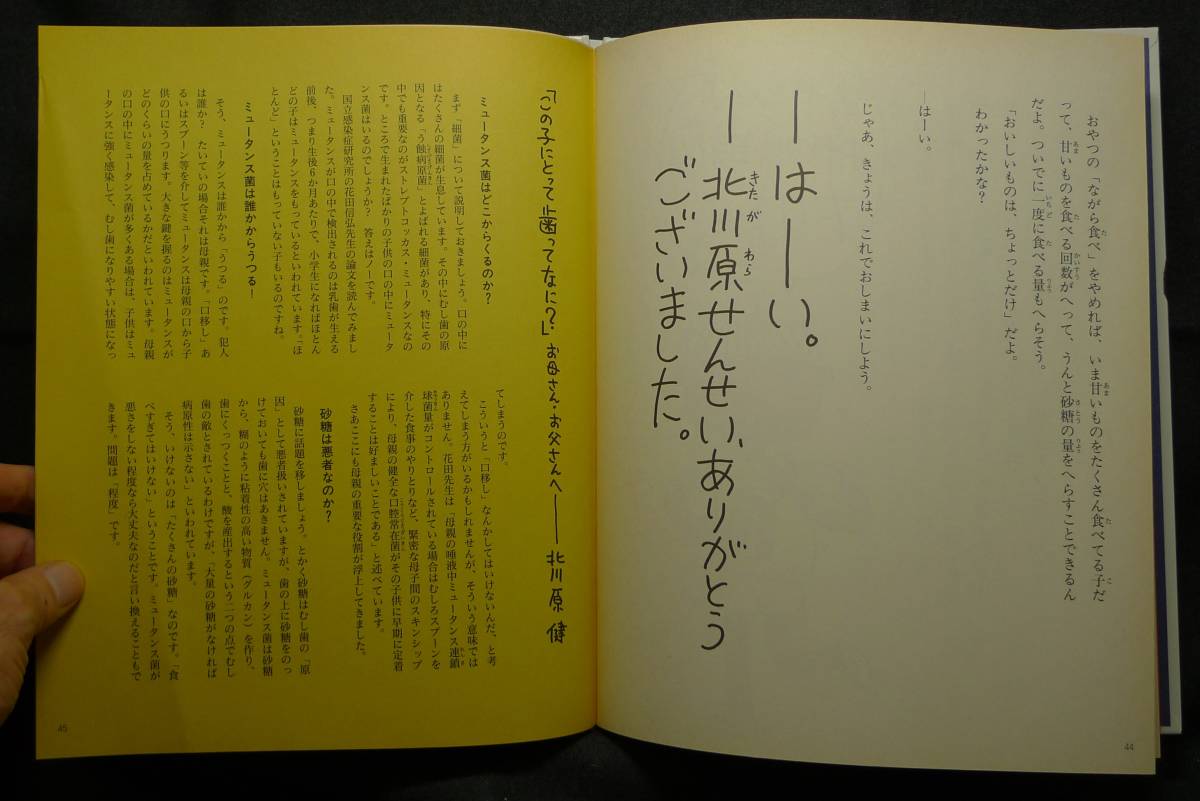 おやつの「ながら食べ」をやめれば、いま甘いものをたくさん食べてる子だ
って、甘いものを食べる回数がへって、うんと砂糖の量をへらすことできるん
だよ。ついでに一度に食べる量もへらそう。
「おいしいものは、ちょっとだけ」だよ。
わかったかな?
―はーい。
じゃあ、きょうは、これでおしまいにしよう。
―はーい。
―北川原せんせい、ありがとう
ございました。
44
「この子にとって歯ってなに?」お母さん・お父さんへ――北川原 健
ミュータンス菌はどこからくるのか?
まず「細菌」について説明しておきましょう。口の中に
はたくさんの細菌が生息しています。その中にむし歯の原
因となる「う蝕病原菌」とよばれる細菌があり、特にその
中でも重要なのがストレプトコッカス・ミュータンスなの
です。ところで生まれたばかりの子供の口の中にミュータ
ンス菌はいるのでしょうか? 答えはノーです。
国立感染症研究所の花田信弘先生の論文を読んでみまし
た。ミュータンスが口の中で検出されるのは乳歯が生える
前後、つまり生後6か月あたりで、小学生になればほとん
どの子はミュータンスをもっているといわれています。「ほ
とんど」ということはもっていない子もいるのですね。
ミュータンス菌は誰かからうつる!
そう、ミュータンスは誰かから「うつる」のです。犯人
は誰か? たいていの場合それは母親です。「口移し」あ
るいはスプーン等を介してミュータンスは母親の口から子
供の口にうつります。大きな鍵を握るのはミュータンスが
どのくらいの量を占めているかだといわれています。母親
の口の中にミュータンス菌が多くある場合は、子供はミュ
ータンスに強く感染して、むし歯になりやすい状態になっ
てしまうのです。
こういうと「口移し」なんかしてはいけないんだ、と考
えてしまう方がいるかもしれませんが、そういう意味では
ありません。花田先生は「母親の唾液中ミュータンス連鎖
球菌量がコントロールされている場合はむしろスプーンを
介した食事のやりとりなど、緊密な母子間のスキンシップ
により、母親の健全な口腔常在菌がその子供に早期に定着
することは好ましいことである」と述べています。
さあここにも母親の重要な役割が浮上してきました。
砂糖は悪者なのか?
砂糖に話題を移しましょう。とかく砂糖はむし歯の「原
因」として悪者扱いされていますが、歯の上に砂糖をのっ
けておいても歯に穴はあきません。ミュータンス菌は砂糖
から、糊のように粘着性の高い物質(グルカン)を作り、
歯にくっつくことと、酸を産出するという二つの点でむし
歯の敵とされているわけですが、「大量の砂糖がなければ
病原性は示さない」といわれています。
そう、いけないのは「たくさんの砂糖」なのです。「食
べすぎてはいけない」ということです。ミュータンス菌が
悪さをしない程度なら大丈夫なのだと言い換えることもで
きます。問題は「程度」です。
45